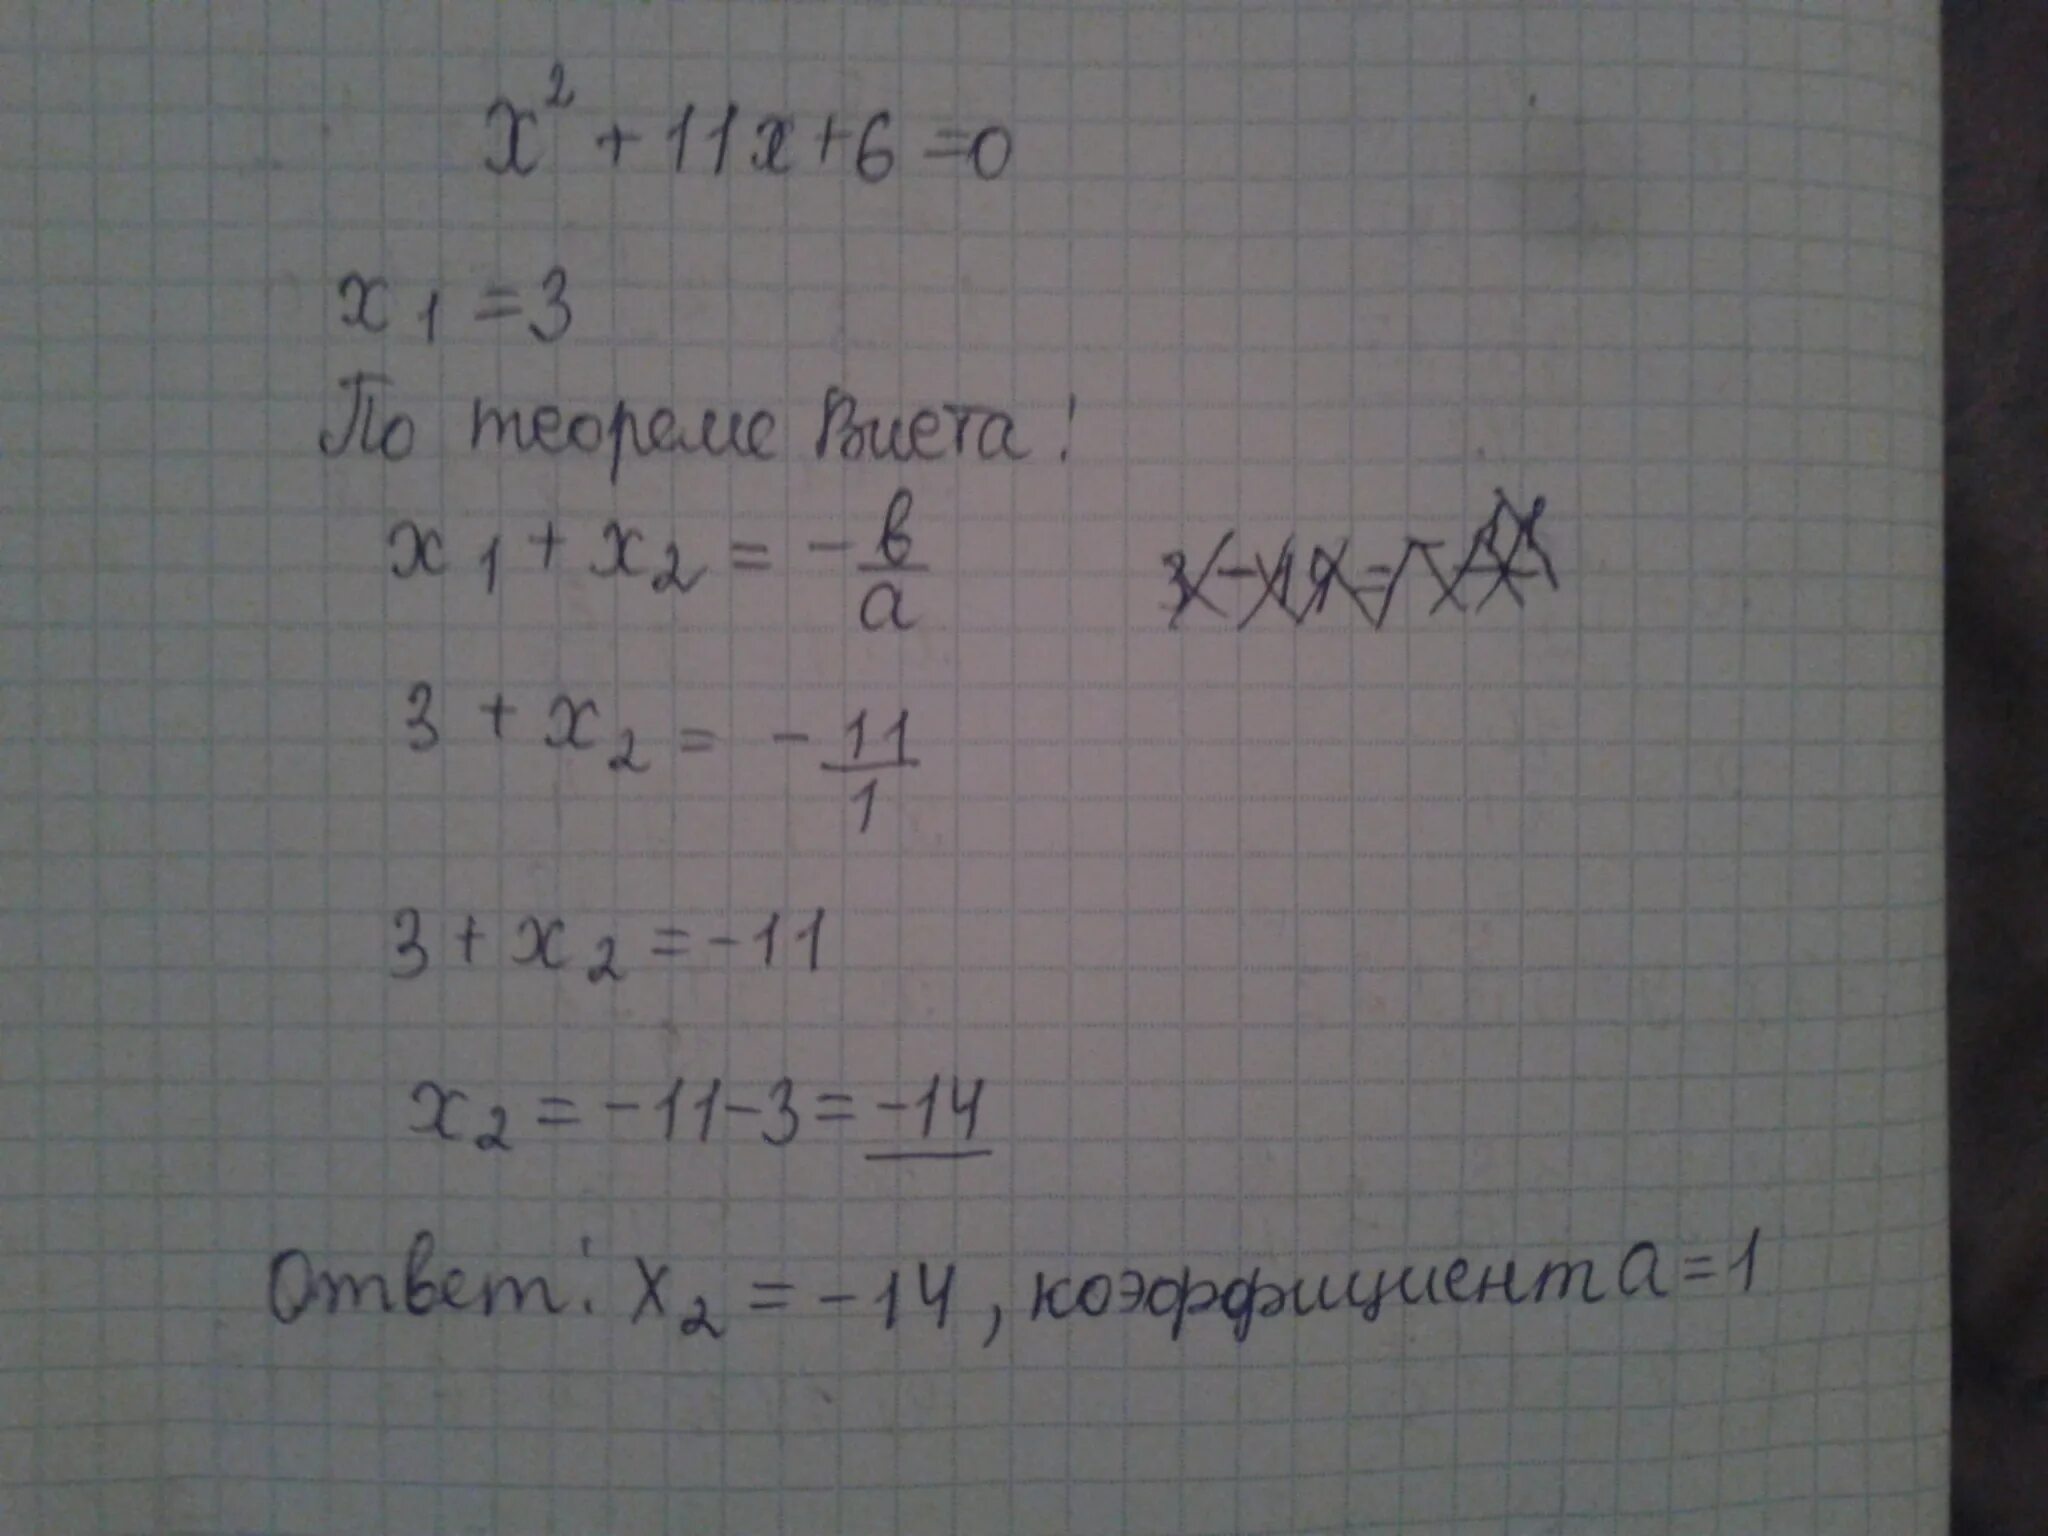 x² + 11x + 6 = 0
x₁ = 3
По теореме Виета:
x₁ + x₂ = - в/а
3 + x₂ = - 11/1
3 + x₂ = -11
x₂ = -11 - 3 = -14
Ответ: x₂ = -14, коэффициент а = 1